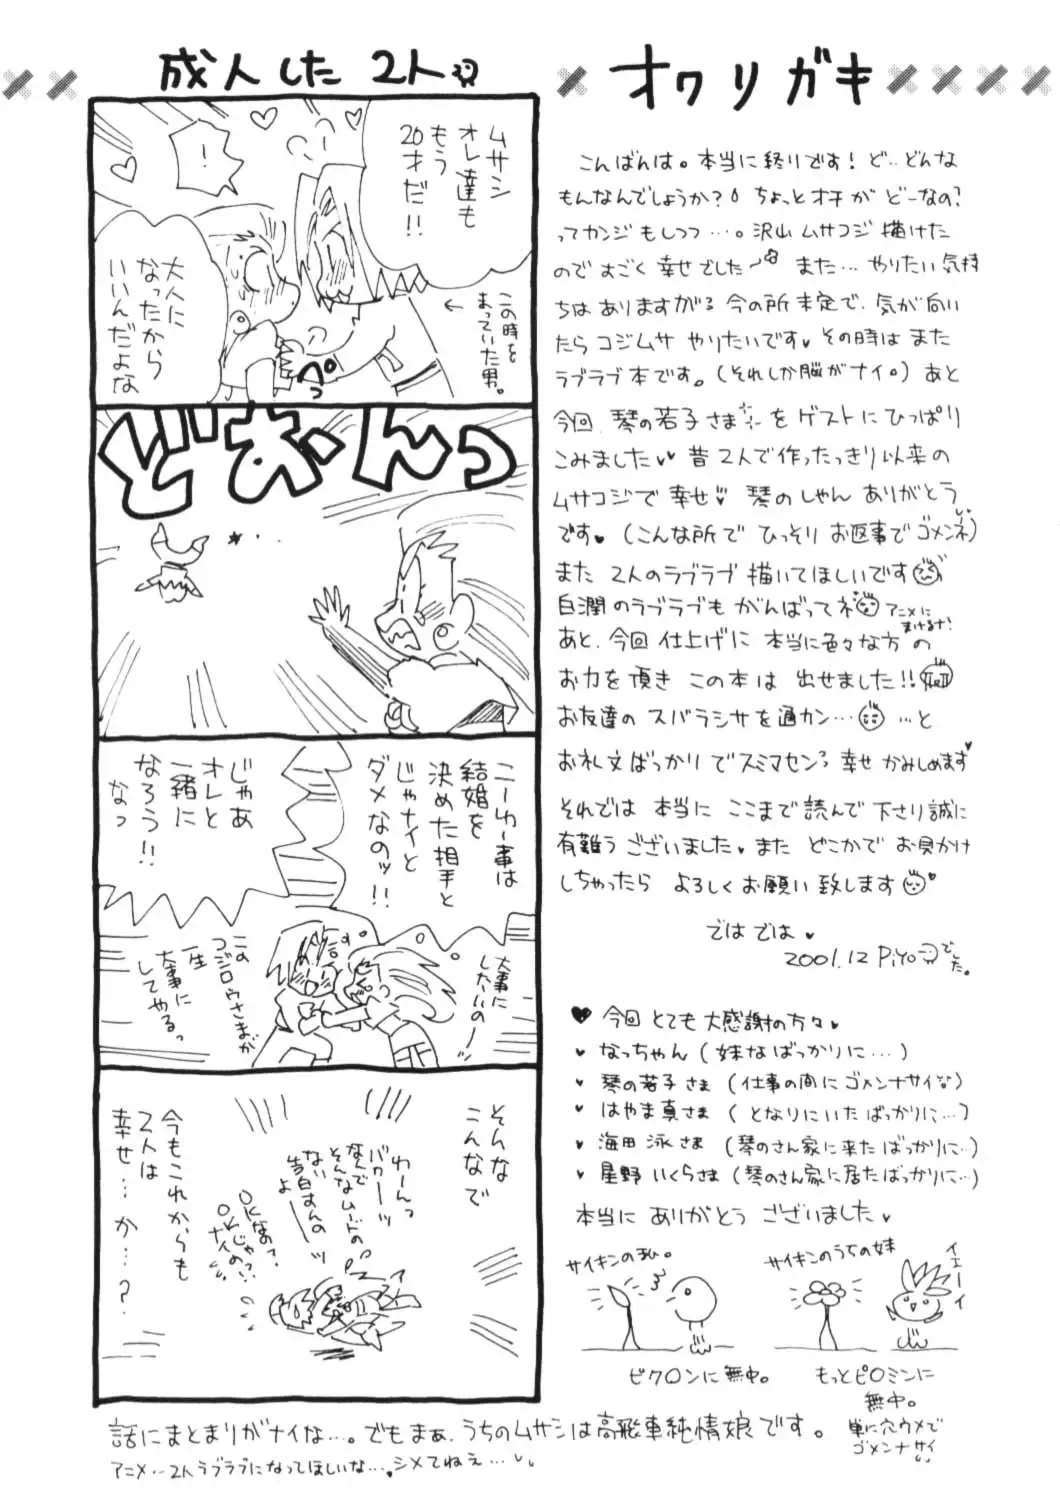 成人した2人
ムサシ
オレ達も
もう
20才だ!!
!
この時を
まっていた男。
←
大人に
なったから
いいんだよな
ぺっ
どおーんっ
こーゆー事は
結婚を
決めた相手と
じゃナイと
ダメなのッ!!
じゃあ
オレと
一緒に
なろう!!
なっ
大事に
したいのー
この
コジロウさまが
一生
大事に
してやるっ
そんな
こんなで
わーんっ
バカーッ
なんで
そんなムードの
ない告白すんの
よーッ
OKなの?
OKじゃ
ナイの?!
今もこれからも
2人は
幸せ…か…?
話にまとまりがナイな…。でもまぁ、うちのムサシは高飛車純情娘です。
アニメ…2人ラブラブになってほしいな…シメてねぇ…
オワリガキ
こんばんは。本当に終りです!ど…どんな
もんなんでしょうか?ちょっとオチがどーなの?
ってカンジもしつつ…。沢山ムサコジ描けた
のですごく幸せでした また…やりたい気持
ちはありますがる今の所未定で、気が向い
たらコジムサやりたいです♥その時はまた
ラブラブ本です。(それしか脳がナイ。)あと
今回、琴の若子さまをゲストにひっぱり
こみました♥♥昔2人で作ったっきり以来の
ムサコジで幸せ♥琴のしゃんありがとう
です♥(こんな所でひっそりお返事でゴメンネ)
また2人のラブラブ描いてほしいです
白潤のラブラブもがんばってネ アニメに
まけるな!
あと、今回仕上げに本当に色々な方の
お力を頂きこの本は出せました!!
お友達のスバラシサを通カン… …と
お礼文ばっかりでスミマセンる幸せかみしめます♥
それでは本当にここまで読んで下さり誠に
有難うございました♥またどこかでお見かけ
しちゃったらよろしくお願い致します♥
ではでは♥
2001.12 Piyoでした。
♥今回とても大感謝の方々♥
♥なっちゃん(妹なばっかりに…)
♥琴の若子さま(仕事の間にゴメンナサイ)
♥はやま真さま(となりにいたばっかりに…)
♥海田泳さま(琴のさん家に来たばっかりに…)
♥星野いくらさま(琴のさん家に居たばっかりに…)
本当にありがとうございました♥
サイキンの私。
ピク〇ンに無中。
サイキンのうちの妹
イエーイ
もっとピ〇ミンに
無中。
単に穴ウメで
ゴメンナサイ